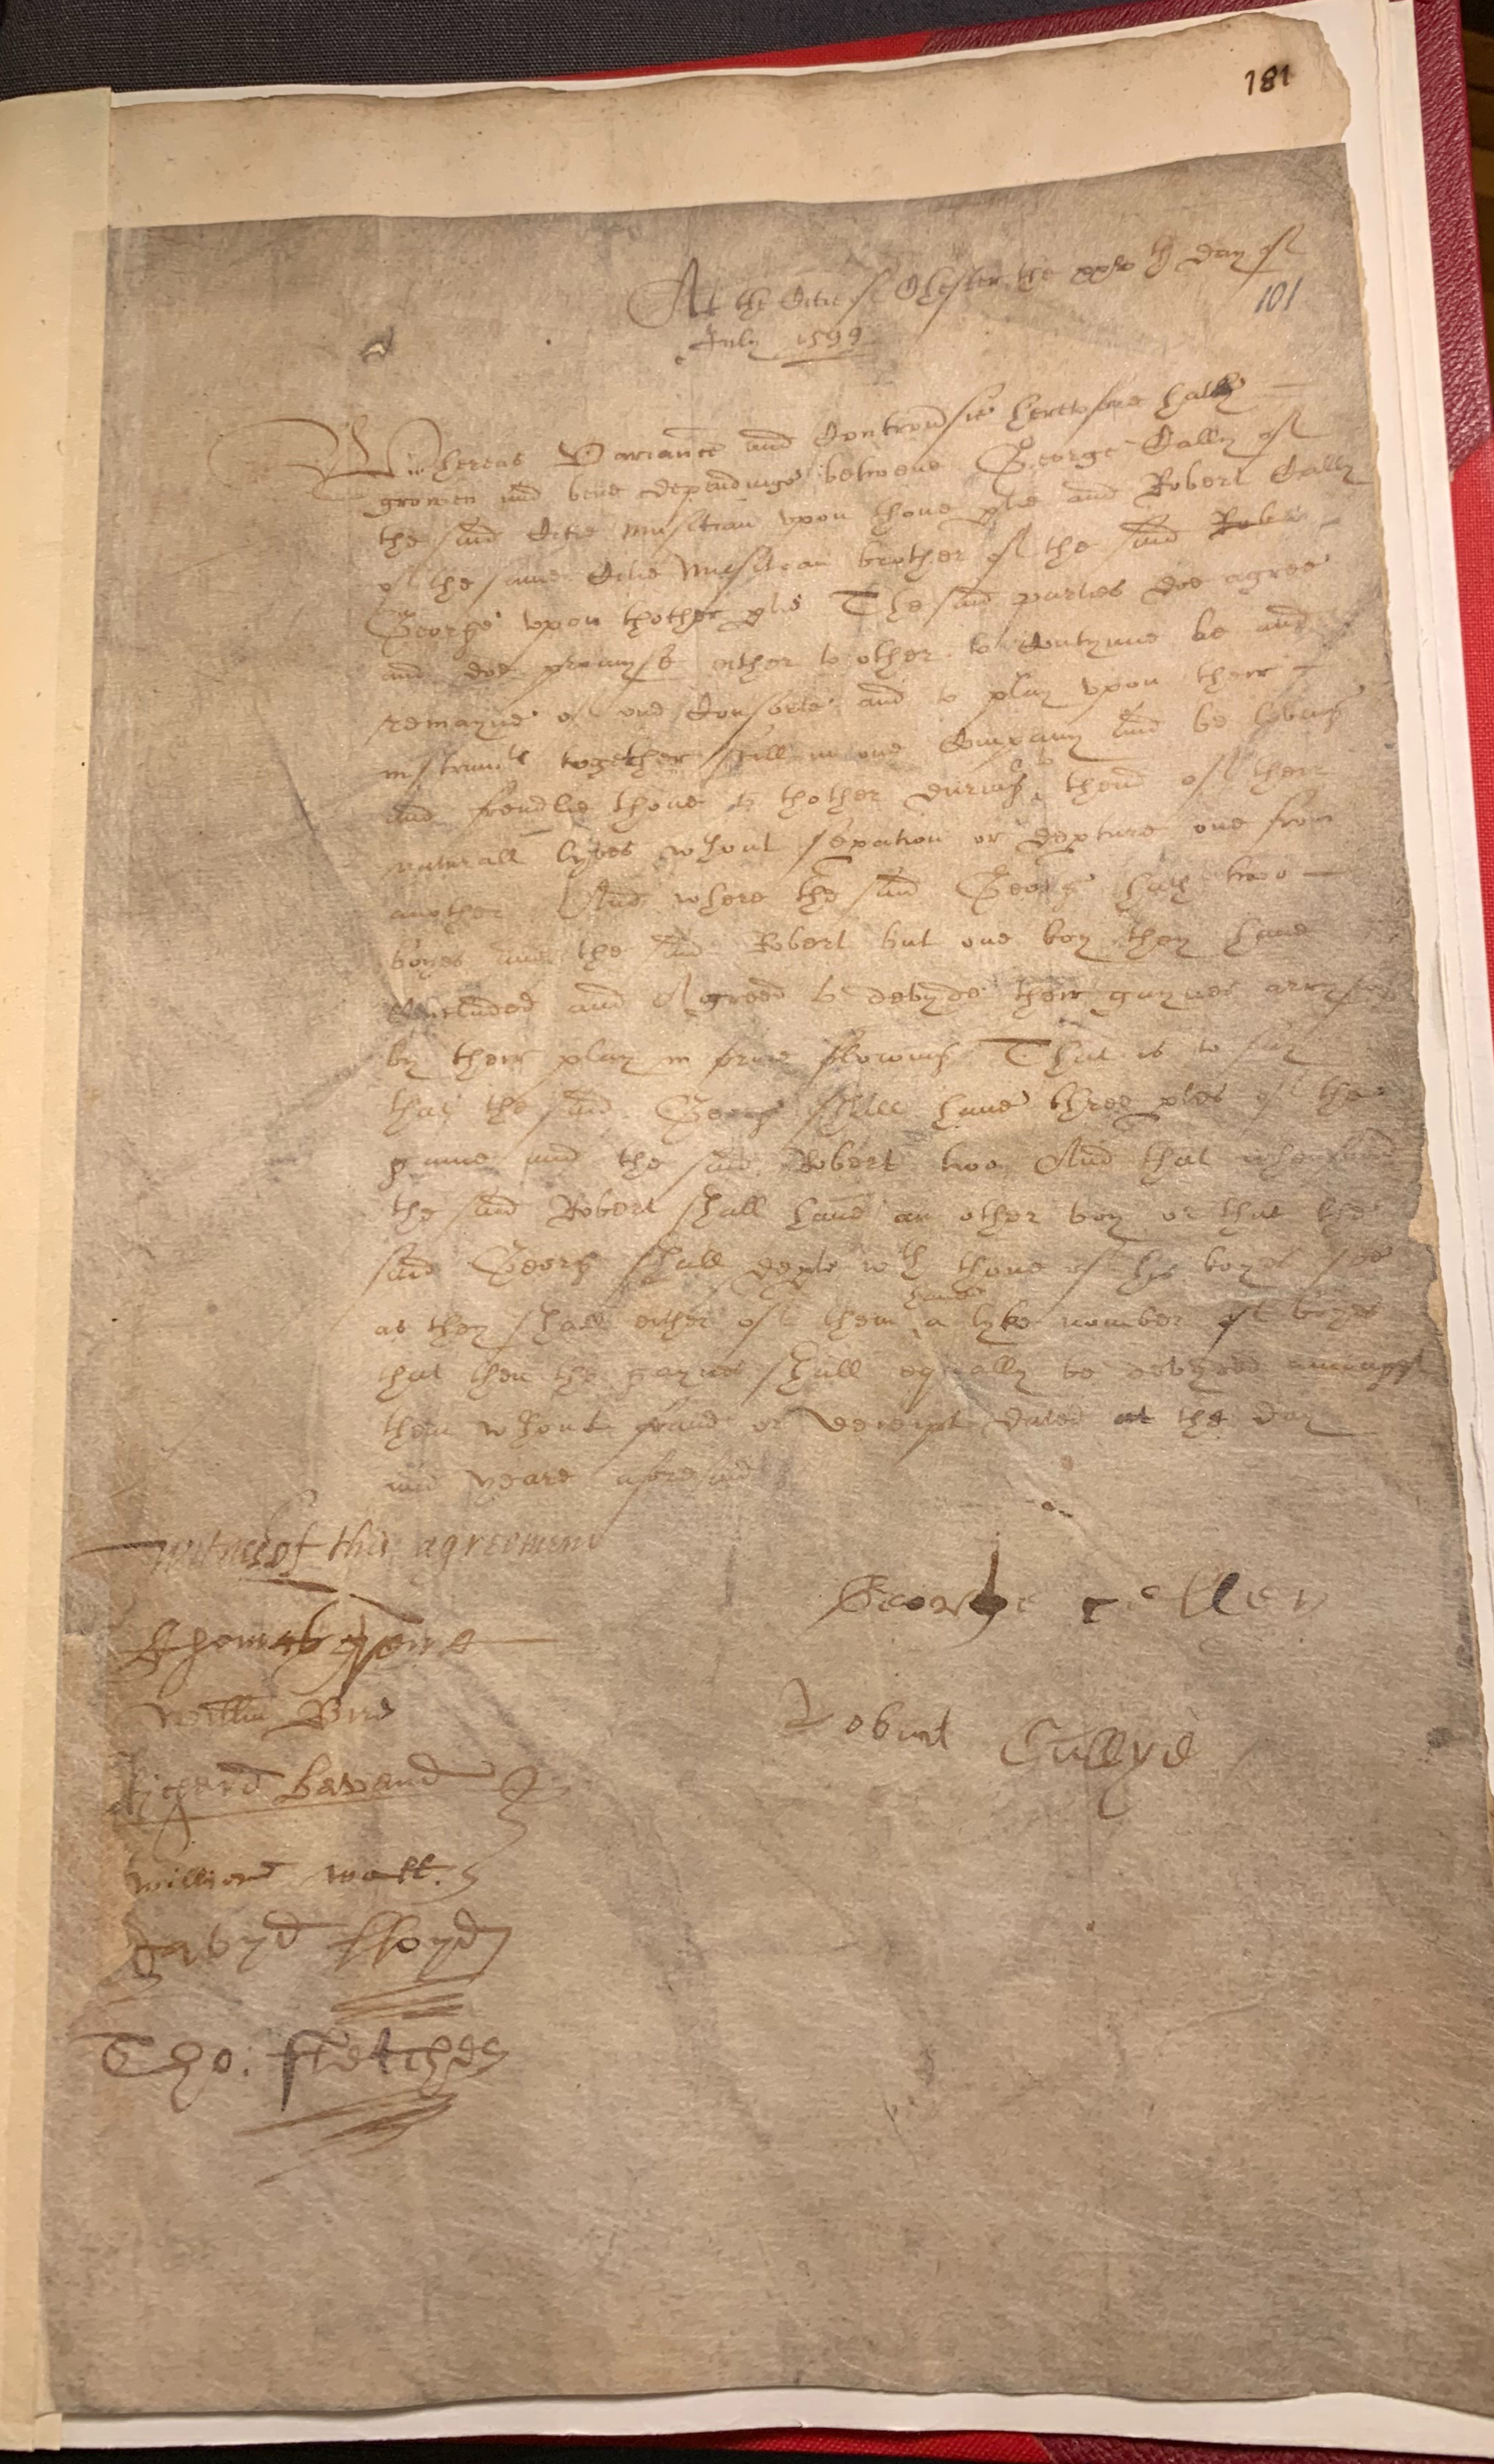 181
At the Citie of Chester the xxvth day of
101
July 1599
Whereas Variance and Controu'sie heretofore hath
growen and bene dependinge betwene George Cally of
the said Citie musitian vpon thone p'tie and Robert Cally
of the same Citie Musitean brother of the said Rober
George vpon thother p'tie The said parties doe agree
and doe promyse either to other to Contynue be and
remayne of one Consorte and to play vpon their
instrum'ts together still in one Company and be lovinge
and frendlie thone to thother during to thend of their
naturall lyves w'thout sep'ation or dep'ture one from
another And where the said George hath two
boyes and the said Robert but one boy they have
Concluded and Agreed to devyde their gaynes arrysing
by their play in forme followinge That is to say
that the said George shall have three p'tes of the
gaine and the said Robert two And that whensoever
the said Robert shall have an other boy or that the
said George shall dep'te wth thone of his boyes soe
have
as they shall either of them a lyke nomber of boyes
that then the gaynes shall equally be devyded amongst
them w'thout fraud or deceipt dated at the day
and yeare aforesaid
Witness of this agreement
George celley
Thomas
Willm Bird
Robart Cullye
Richard Bavand
William wall.
Davyd lloyd
Tho: ffletcher